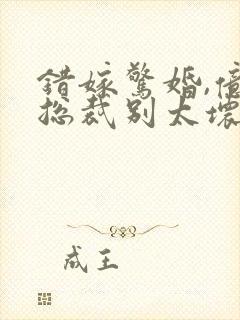 错嫁惊婚,亿
总裁别太坏
成王